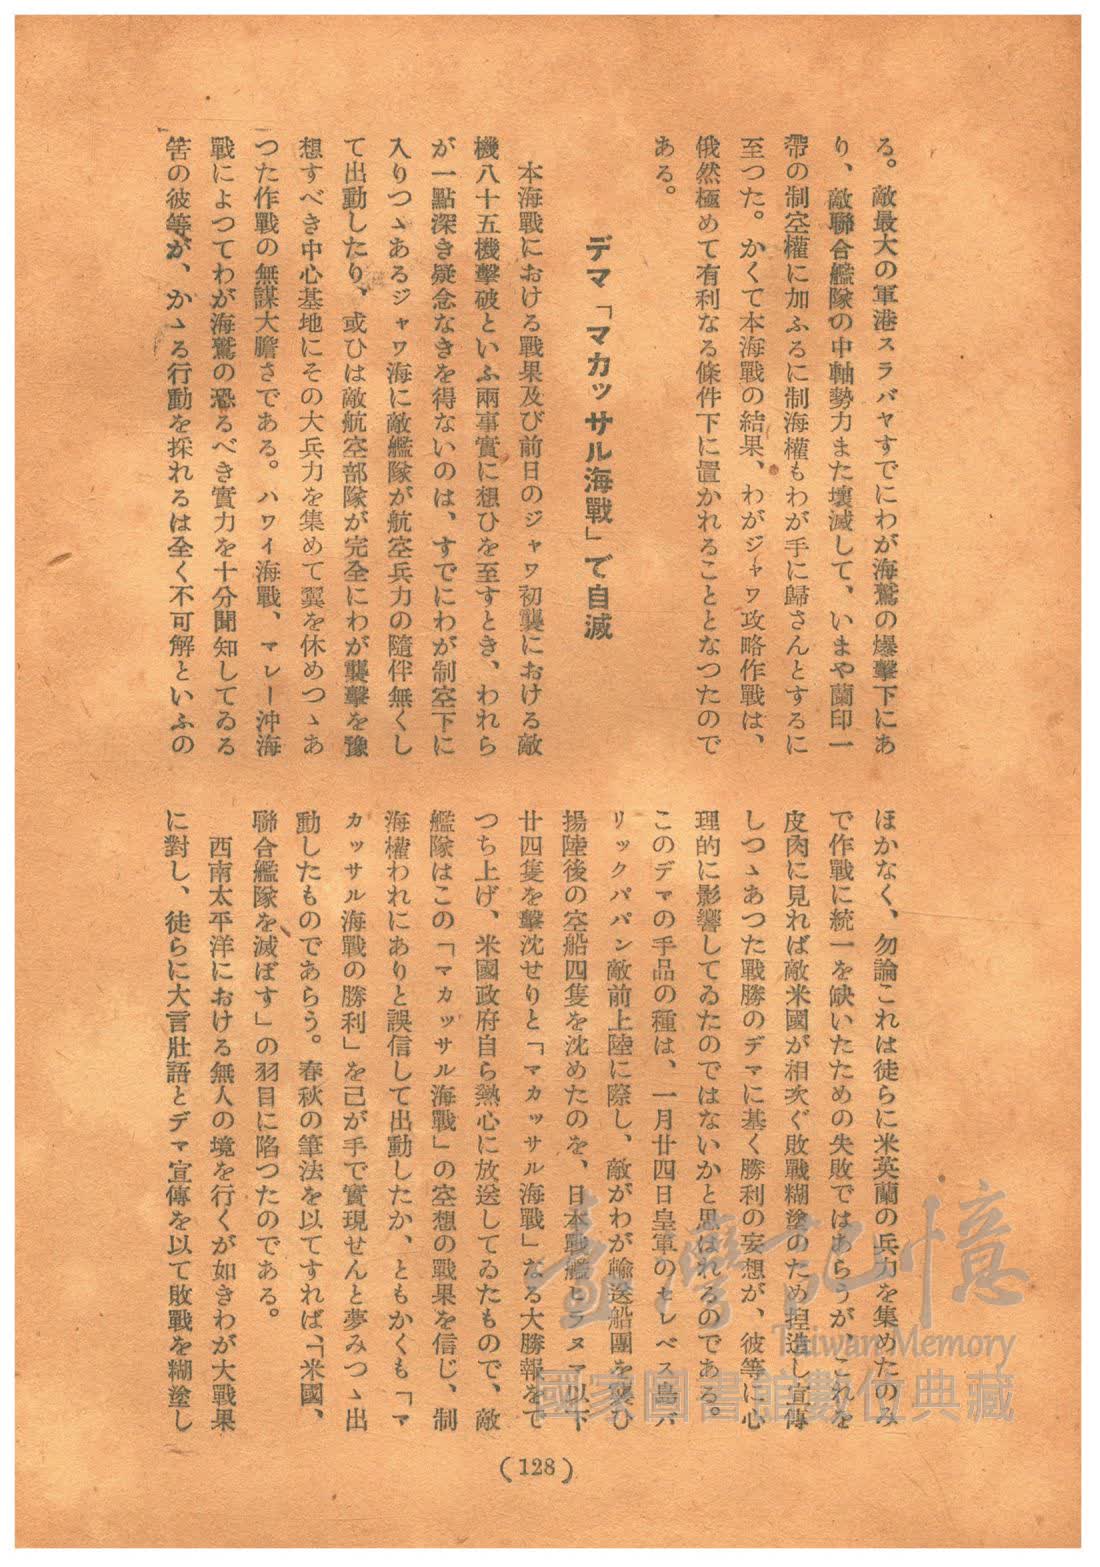 る。敵最大の軍港スラバヤすでにわが海鷲の爆擊下にあ
り、敵聯合艦隊の中軸勢力また壞滅して、いまや蘭印一
帶の制空權に加ふるに制海權もわが手に歸さんとするに
至つた。かくて本海戰の結果、わがジャワ攻略作戰は、
俄然極めて有利なる條件下に置かれることとなつたので
ある。
デマ「マカッサル海戰」で自滅
本海戰における戰果及び前日のジャワ初襲における敵
機八十五機擊破といふ兩事實に想ひを至すとき、われら
が一點深き疑念なきを得ないのは、すでにわが制空下に
入りつゝあるジャワ海に敵艦隊が航空兵力の隨伴無くし
て出動したり、或ひは敵航空部隊が完全にわが襲擊を豫
想すべき中心基地にその大兵力を集めて翼を休めつゝあ
つた作戰の無謀大膽さである。ハワイ海戰、マレー沖海
戰によつてわが海鷲の恐るべき實力を十分聞知してゐる
筈の彼等が、かゝる行動を採れるは全く不可解といふの
ほかなく、勿論これは徒らに米英蘭の兵力を集めたのみ
で作戰に統一を缺いたための失敗ではあらうが、これを
皮肉に見れば敵米國が相次ぐ敗戰糊塗のため捏造し宣傳
しつゝあつた戰勝のデマに基く勝利の妄想が、彼等に心
理的に影響してゐたのではないかと思はれるのである。
このデマの手品の種は、一月廿四日皇軍のセレベス島バ
リックパパン敵前上陸に際し、敵がわが輸送船團を襲ひ
揚陸後の空船四隻を沈めたのを、日本戰艦ヒラヌマ以下
廿四隻を擊沈せりと「マカッサル海戰」なる大勝報をで
つち上げ、米國政府自ら熱心に放送してゐたもので、敵
艦隊はこの「マカッサル海戰」の空想の戰果を信じ、制
海權われにありと誤信して出動したか、ともかくも「マ
カッサル海戰の勝利」を己が手で實現せんと夢みつゝ出
動したものであらう。春秋の筆法を以てすれば、「米國、
聯合艦隊を滅ぼす」の羽目に陷つたのである。
西南太平洋における無人の境を行くが如きわが大戰果
に對し、徒らに大言壯語とデマ宣傳を以て敗戰を糊塗し
(128)
臺灣記憶
Taiwan Memory
國家圖書館數位典藏